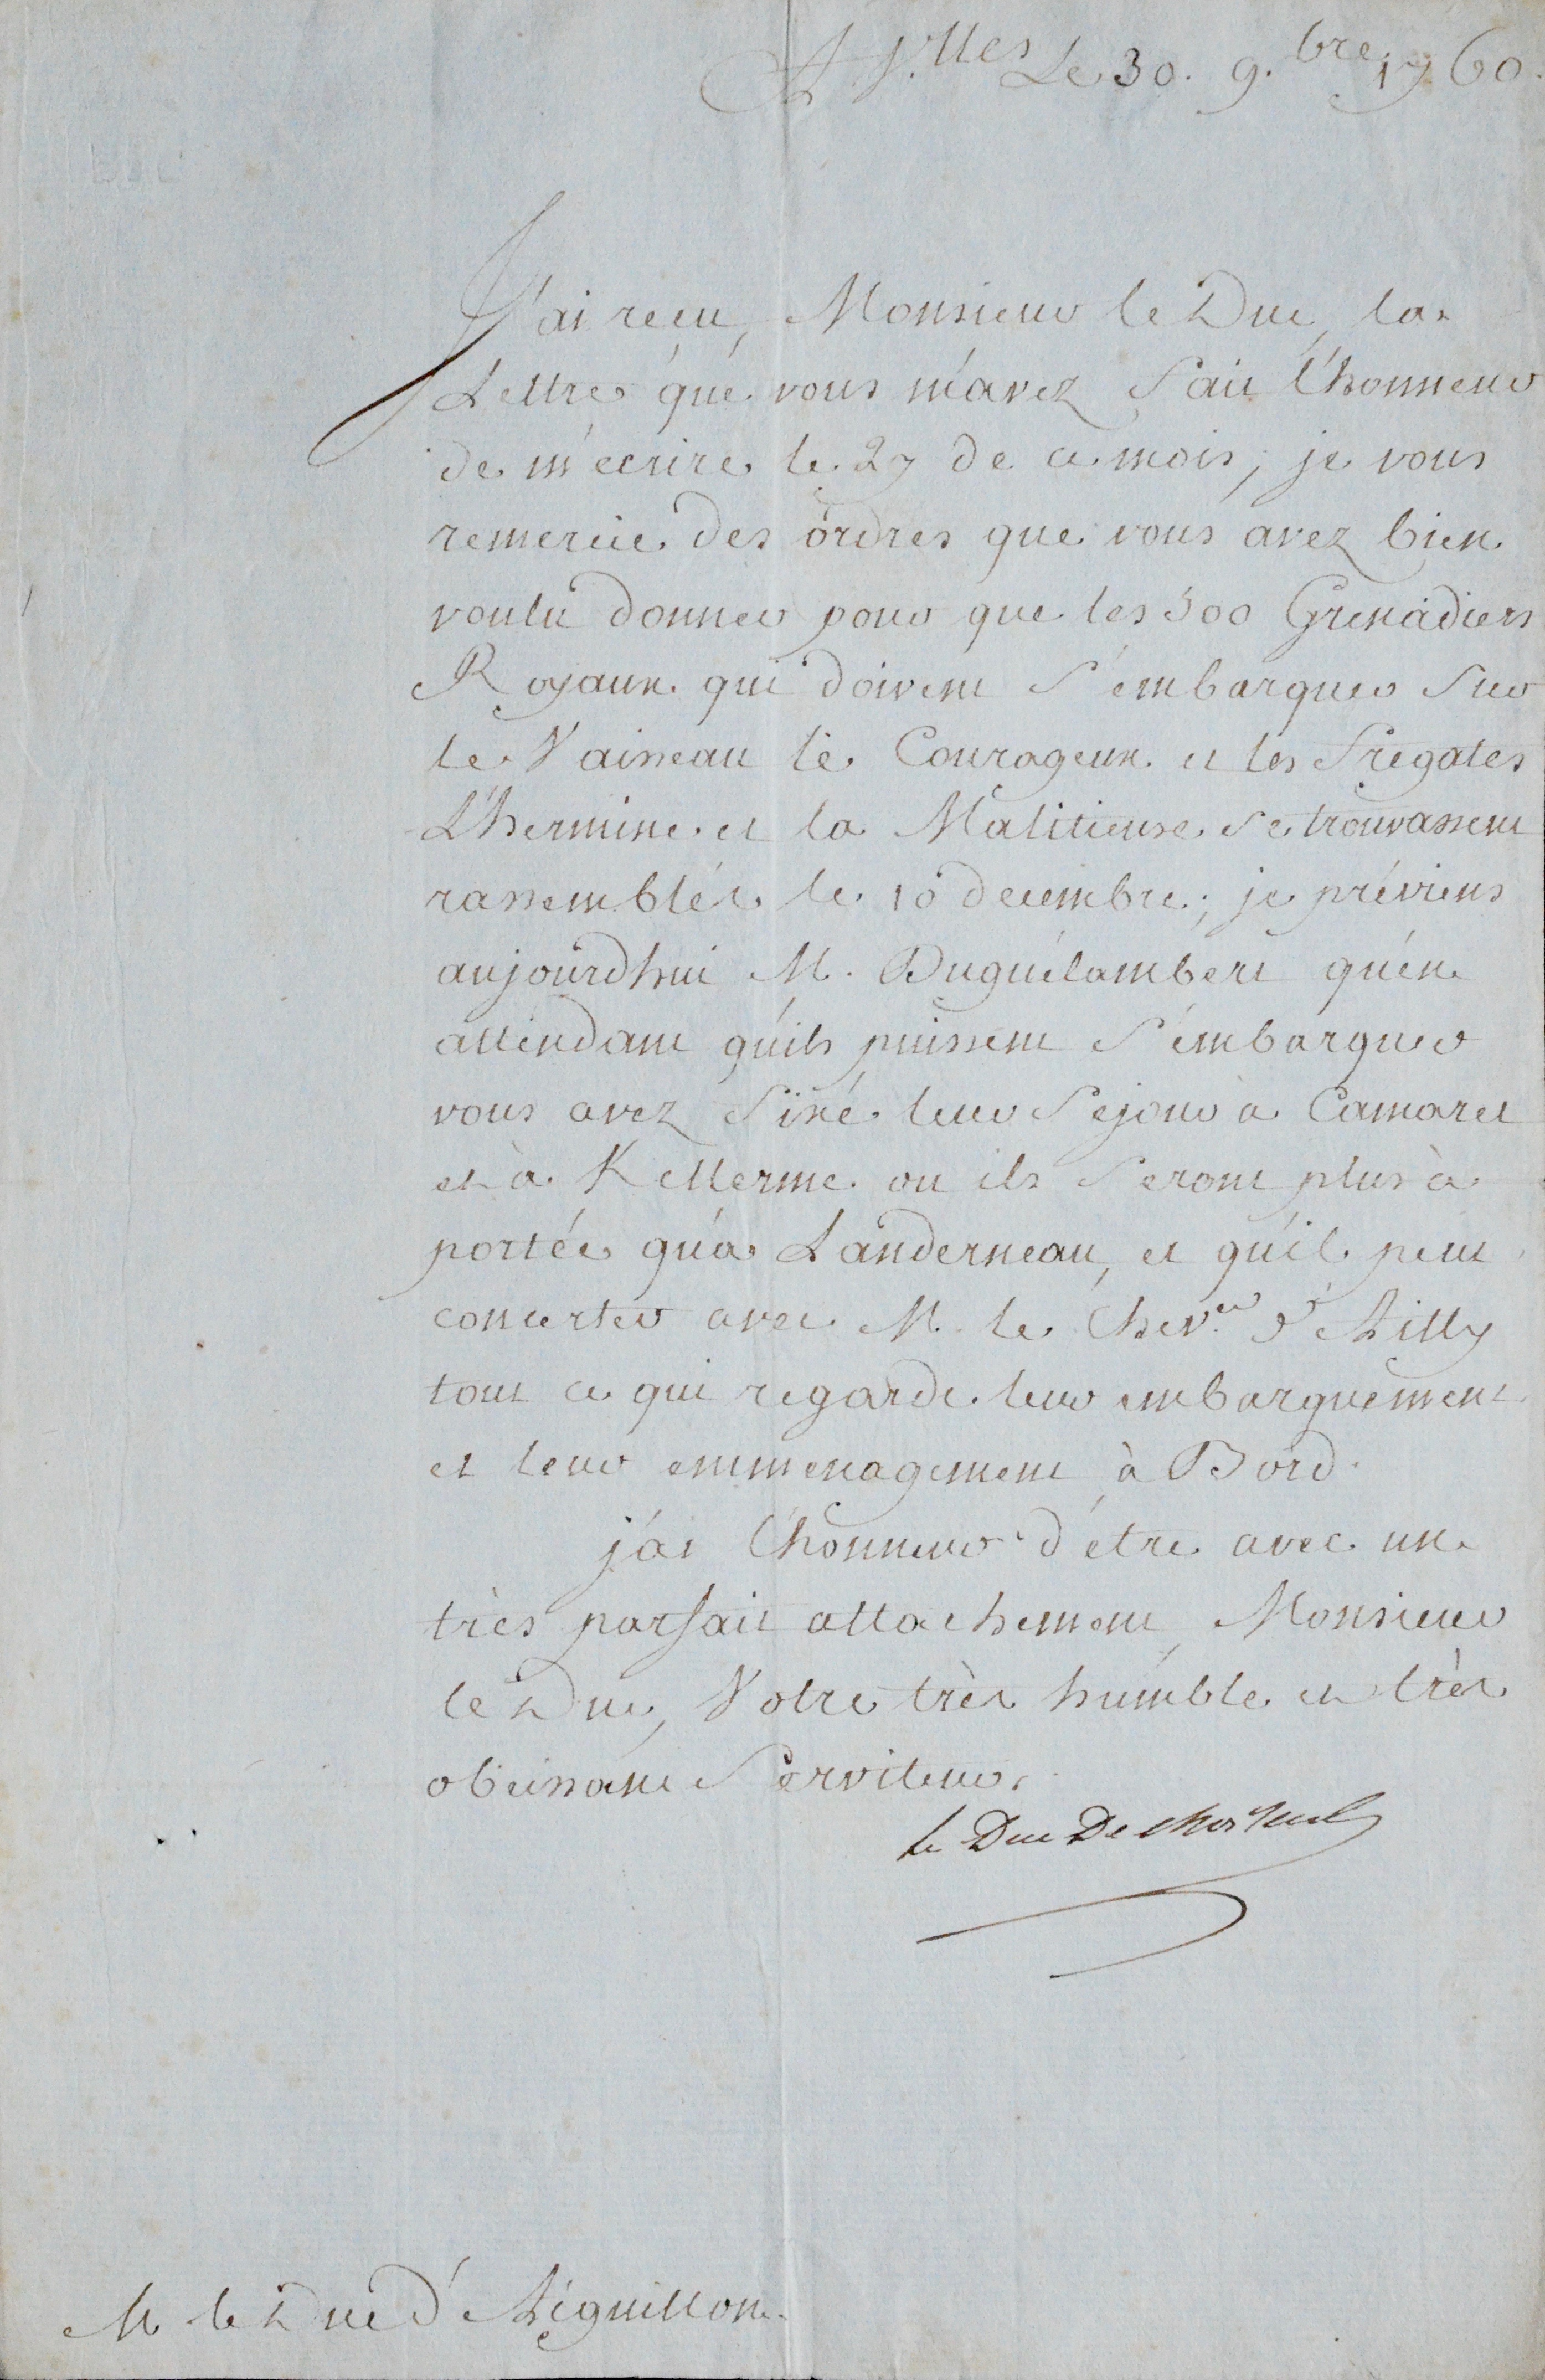 A V.lles Le 30. 9.bre 1760.
J'ai reçu, Monsieur le Duc, la
Lettre que vous m'avez fait l'honneur
de m'ecrire le 27 de ce mois, je vous
remercie des ordres que vous avez bien
voulu donner pour que les 500 Grenadiers
Royaux qui doivent s'embarquer sur
le Vaisseau le Courageux et les fregates
L'hermine et la Malitieuse se trouvassent
rassemblés le 10 decembre; je préviens
aujourdhui M. Duguélambert qu'en
attendant qu'ils puissent s'embarquer
vous avez fixé leur sejour a Camaret
et à Kellerme ou ils seront plus à
portée qu'a Landerneau, et qu'il peut
concerter avec M. le Chev.er d'Ailly
tout ce qui regarde leur embarquement
et leur emmenagement à Bord.
j'ai l'honneur d'etre avec un
très parfait attachement, Monsieur
le Duc, Votre très humble et très
obeissant Serviteur.
le Duc De choiseul
M. le Duc d'Aiguillon.